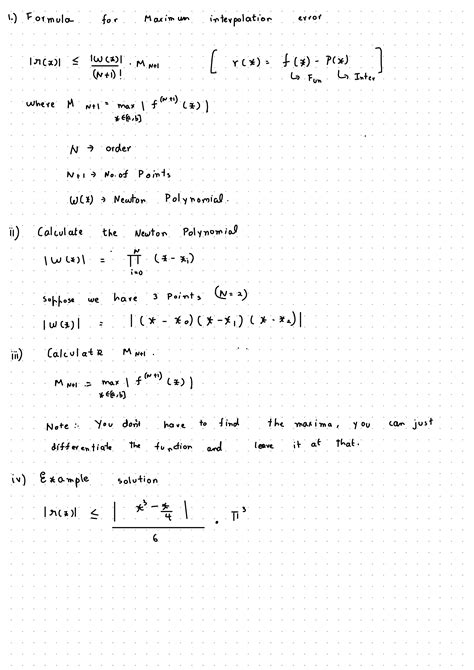 i.) Formula for Maximum interpolation error
|r(x)| ≤ |W(x)| / (N+1)! · M N+1 [ r(x) = f(x) - P(x) ]
↳ Fun ↳ Inter
where M N+1 = max x∈[a,b] | f^(N+1) (x) |
N → order
N+1 → No. of Points
W(x) → Newton Polynomial.
ii) Calculate the Newton Polynomial
|W(x)| = N ∏ i=0 (x - xi)
suppose we have 3 Points (N = 2)
|W(x)| = |(x - x0)(x - x1)(x - x2)|
iii) Calculate M N+1.
M N+1 = max x∈[a,b] | f^(N+1) (x) |
Note :- You don't have to find the maxima, you can just
differentiate the function and leave it at that.
iv) Example solution
|r(x)| ≤ | x³ - x/4 | / 6 · π³